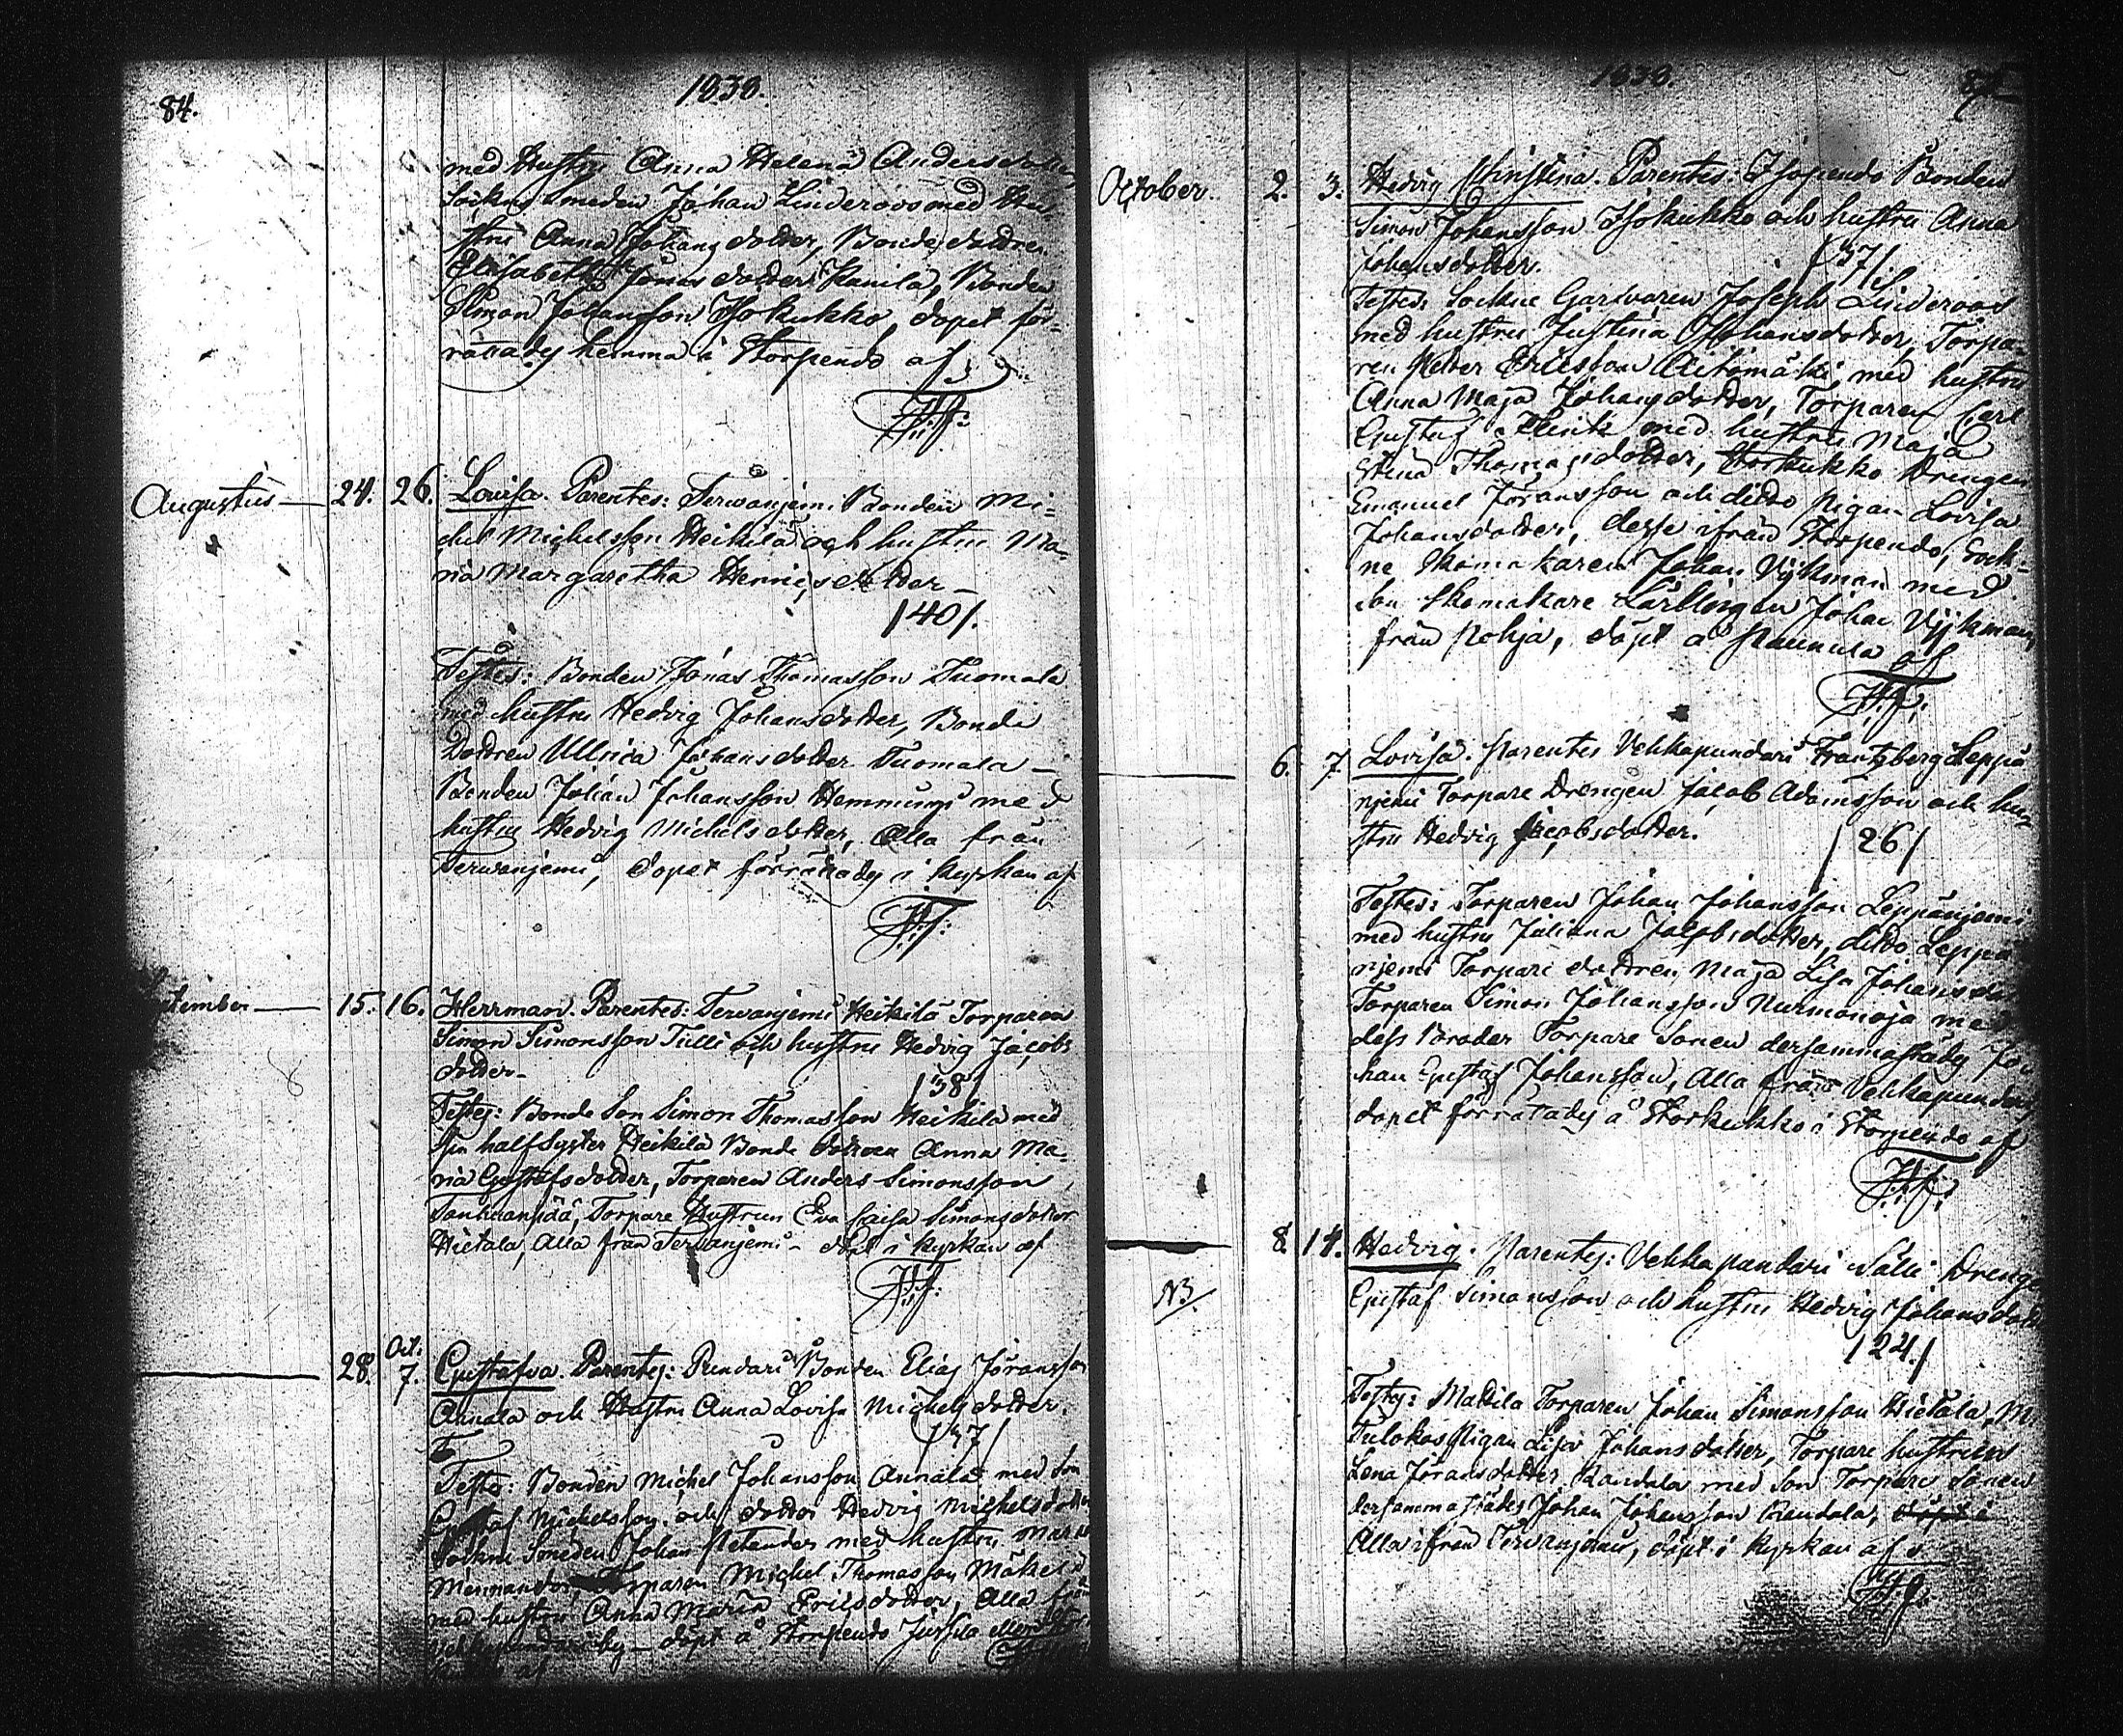 84.
1838.
med Hustru Anna Helena Andersdotter,
Sockne Smeden Johan Linderoos med Hu
stru Anna Johansdotter, Bonde dottren
Elisabeth Jonas dotter Kanila, Bonden
Simon Johansson Isokukko, dopet för-
rättades hemma i Storpendo af
Augustus 24. 26. Lovisa. Parentes: Terwanjemi Bonden Mi-
chel Michelsson Heikilä och hustru Ma-
ria Margaretha Henricsdotter
/40/.
Testes: Bonden Jonas Thomasson Tuomala
med hustru Hedvig Johansdotter, Bonde
Dottren Ullrica Johansdotter Tuomala
Bonden Johan Johansson Hemmings med
hustru Hedvig Michelsdotter, Alla från
Terwanjemi, dopet förrättades i kyrkan af
tember 15. 16. Herrman. Parentes: Tervanjemi Heikilä Torparen
Simon Simonsson Tulli och hustru Hedvig Jacobs
dotter
/38/
Testes: Bonde Son Simon Thomasson Heikilä med
sin half Syster Heikilä Bonde dottren Anna Ma-
ria Gustafsdotter, Torparen Anders Simonsson
Torpare Hustrun Eva Caisa Simonsdotter
Hietala, Alla från Tervanjemi döpt i kyrkan af
28. Oct. 7. Gustafva. Parentes: Pundari Bonden Elias Göransson
Annala och Hustru Anna Lovisa Michelsdotter.
/37/
Testes: Bonden Michel Johansson Annala med Son
Gustaf Michelsson och dotter Hedvig Michelsdotter
Sockne Smeden Johan Petander med hustru Maria
Torparen Michel Thomasson Mäkelä
med hustru Anna Maria Ericsdotter, Alla från
by döpt å Storpendo
af
1838.
85
October. 2. 3. Hedvig Christina. Parentes: Isopendo Bonden
Simon Johansson Isokukko och hustru Anna
Johansdotter.
/37/
Testes: Sockne Garfvaren Joseph Linderoos
med hustru Justina Johansdotter, Torpa-
ren Petter Ericsson Aitomäki med hustru
Anna Maja Johansdotter, Torparen Carl
Gustaf med hustru Maja
Stina Thomasdotter, Storkukko Drengen
Emanuel Göransson och ditto Pigan Lovisa
Johansdotter, desse ifrån Storpendo, Sock-
ne Skomakaren Johan Vijkman med
Son Skomakare Lärlingen Johan Vijkman,
från Pohja, döpt å af
6. 7 Lovisa. Parentes Vehkapundari Frantzberg Leppä
njemi Torpare Drengen Jacob Adamsson och hu-
stru Hedvig Jacobsdotter.
/26/
Testes: Torparen Johan Johansson Leppänjemi
med hustru Juliana Jacobsdotter, ditto Leppä
njemi Torpare dottren Maja Lisa Johansdot
Torparen Simon Johansson Nurmenoja med
dess Broder Torpare Sonen dersammastädes Jo
han Gustaf Johansson, Alla från Vehkapundari
dopet förrättades å Storkukko i Storpendo af
8. 14. Hedvig. Parentes: Vehkapundari Sälli Drengen
NB.
Gustaf Simonsson och hustru Hedvig Johansdott
/24./
Testes: Mattila Torparen Johan Simonsson Hietala,
Tulokas Pigan Lisa Johansdotter, Torpare hustrun
Lena Göransdotter Randala med Son Torpare Sonen
dersammastädes Johan Johansson Randala,
Alla ifrån Tervanjemi, döpt i kyrkan af